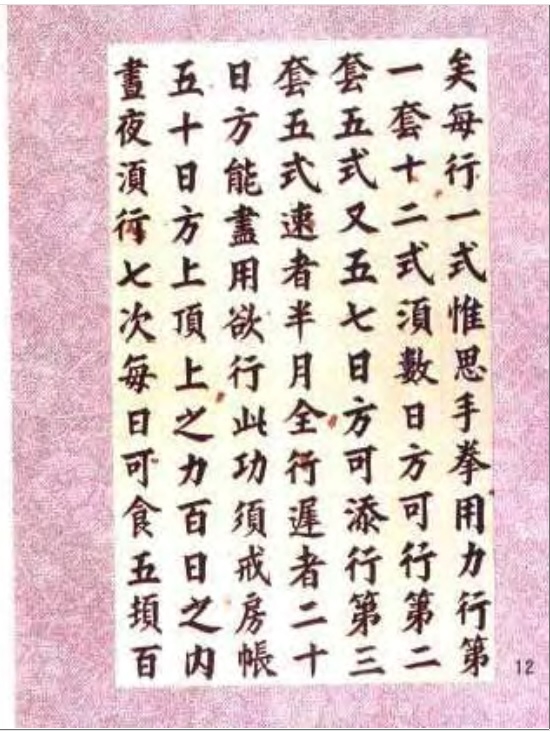 矣每行一式惟思手拳用力行第
一套十二式須數日方可行第二
套五式又五七日方可添行第三
套五式速者半月全行遲者二十
日方能盡用欲行此功須戒房帳
五十日方上頂上之力百日之內
晝夜須行七次每日可食五頓百
12